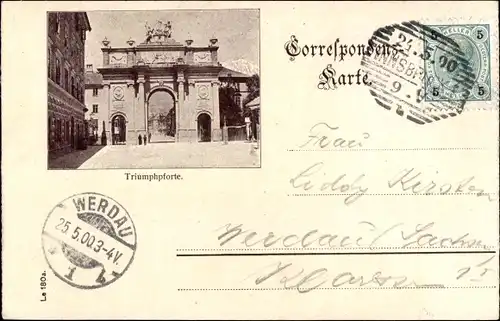 Correspondenz-
Karte.
5 5
5 HELLER 5
24.5.00
INNSBRUCK
9
Triumphpforte.
Frau
Liddy Kirsten
Werdau/Sachsen
WERDAU
25.5.00.3-4V.
1
La 180a.